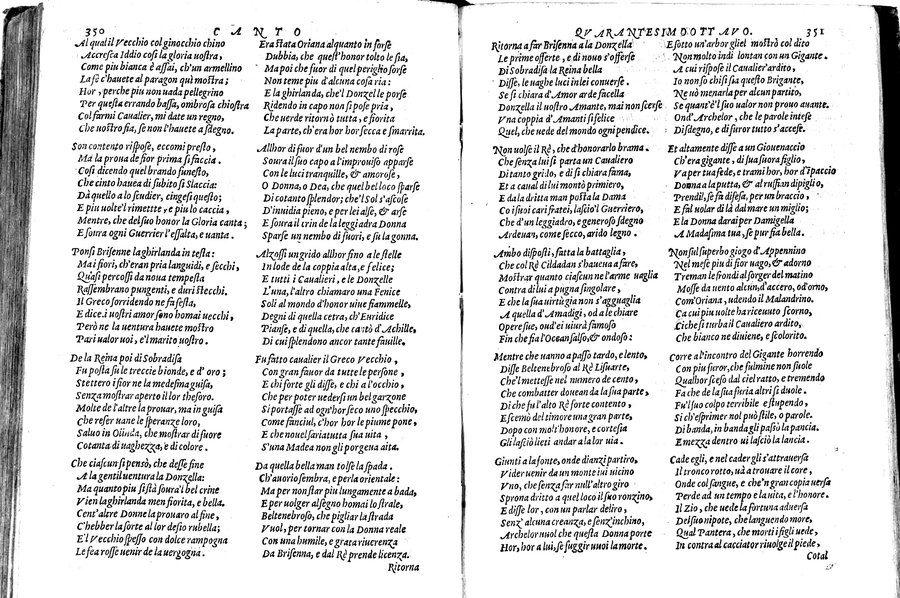 350 CANTO
Al qual il Vecchio col ginocchio chino
Accresca Iddio cosi la gloria uostra,
Come piu bianca è assai, ch'un armellino
La fè c'hauete al paragon quì mostra;
Hor, perche piu non uada pellegrino
Per questa errando bassa, ombrosa chiostra
Col farmi Caualier, mi date un regno,
Che uostro fia, se non l'hauete a sdegno.
Son contento rispose, eccomi presto,
Ma la proua de fior prima si faccia.
Cosi dicendo quel brando funesto,
Che cinto hauea di subito si slaccia:
Dà quello a lo scudier, cingesi questo;
E piu uolte'l rimette, e piu lo caccia,
Mentre, che del suo honor la Gloria canta;
E soura ogni Guerrier l'essalta, e uanta.
Ponsi Brisenne la ghirlanda in testa:
Mai fiori, ch'eran pria languidi, e secchi,
Quasi percossi da noua tempesta
Rassembrano pungenti, e duri stecchi.
Il Greco sorridendo ne fa festa,
E dice, i uostri amor sono homai uecchi,
Però ne la uentura hauete mostro
Pari ualor uoi, e'l marito uostro.
De la Reina poi di Sobradisa
Fu posta su le treccie bionde, e d'oro;
Stettero i fior ne la medesma guisa,
Senza mostrar aperto il lor thesoro.
Molte de l'altre la prouar, ma in guisa
Che refer uane le speranze loro,
Saluo in Olinda, che mostrar di fuore
Cotanta di uaghezza, e di colore.
Che ciascun si pensò, che desse fine
A la gentil uentura la Donzella:
Ma quanto piu si stà soura'l bel crine
Vien la ghirlanda men fiorita, e bella.
Cent'altre Donne la prouaro al fine,
C'hebber la sorte al lor desio rubella;
E'l Vecchio spesso con dolce rampogna
Le fea rosse uenir de la uergogna.
Era stata Oriana alquanto in forse
Dubbia, che quest'honor tolto le sia,
Ma poi che fuor di quel periglio forse
Non teme piu d'alcuna cosa ria:
E la ghirlanda, che'l Donzel le porse
Ridendo in capo non si pose pria,
Che uerde ritornò tutta, e fiorita
La parte, ch'era hor hor secca e smarrita.
Allhor di fuor d'un bel nembo di rose
Soura il suo capo a l'improuiso apparse
Con le luci tranquille, & amorose,
O Donna, o Dea, che quel bel loco sparse
Di cotanto splendor; che'l Sol s'ascose
D'inuidia pieno, e per lei alse, & arse
E soura il crin de la leggiadra Donna
Sparse un nembo di fiori, e sù la gonna.
Alzossi un grido allhor fino a le stelle
In lode de la coppia alta, e felice;
E tutti i Caualieri, e le Donzelle
L'una, l'altro chiamaro una Fenice
Soli al mondo d'honor uiue fiammelle,
Degni di quella cetra, ch'Euridice
Pianse, e di quella, che cātò d'Achille,
Di cui splendono ancor tante fauille.
Fu fatto caualier il Greco Vecchio,
Con gran fauor da tutte le persone,
E chi forte gli disse, e chi a l'occhio,
Che per poter uedersi un bel garzone
Si portasse ad ogn'hor seco uno specchio,
Come fanciul, c'hor hor le piume pone,
E che nouel saria tutta sua uita,
S'una Madea non gli porgena aita.
Da quella bella man tolse la spada.
Ch'auorio sembra, e perla orientale:
Ma per non star piu lungamente a bada,
E per uolger al segno homai lo strale,
Beltenebroso, che pigliar la strada
Vuol, per tornar con la Donna reale
Con una humile, e grata riuerenza
Da Brisenna, e dal Rè prende licenza.
Ritorna
QVARANTESIMOOTTAVO. 351
Ritorna a far Brisenna a la Donzella
Le prime offerte, e di nouo s'offerse
Di Sobradisa la Reina bella
Disse, le uaghe luci in lei conuerse.
Se si chiara d'Amor arde facella
Donzella il uostro Amante, mai non scerse
Vna coppia d'Amanti si felice
Quel, che uede del mondo ogni pendice.
Non uolse il Rè, che d'honorarlo brama.
Che senza lui si parta un Caualiero
Di tanto grido, e di si chiara fama,
Et a caual di lui montò primiero,
E da la dritta man posta la Dama
Co i suoi carissirati, lasciò'l Guerriero,
Che d'un leggiadro, e generoso sdegno
Ardeuan, come secco, arido legno.
Ambo disposti, fatta la battaglia,
Che col Rè Cildadan s'hauea a fare,
Mostrar quanto ciascun ne l'arme uaglia
Contra di lui a pugna singolare,
E che la sua uirtù già non s'agguaglia
A quella d'Amadigi, od a le chiare
Opere sue, ond'ei uiurà famoso
Fin che fia l'Ocean salso, & ondoso:
Mentre che uanno a passo tardo, e lento,
Disse Beltenebroso al Rè Lisuarte,
Che'l mettesse nel numero de cento,
Che combatter doueano da la sua parte,
Di che fu l'alto Rè forte contento,
E scemò del timore una gran parte,
Dopo con molt'honore, e cortesia
Gli lasciò lieti andar a la lor uia.
Giunti a la fonte, onde dianzi partiro,
Vider uenir da un monte iui uicino
Vno, che senza far null'altro giro
Sprona dritto a quel loco il suo ronzino,
E disse lor, con un parlar deliro,
Senz' alcuna creanza, e senz'inchino,
Archelor uuol che questa Donna porte
Hor, hor a lui, se fuggir uuoi la morte.
E sotto un'arbor gliel mostrò col dito
Non molto indi lontan con un Gigante.
A cui rispose il Caualier'ardito,
Io non sò chi si sia questo Brigante,
Ne uò menarla per alcun partito,
Se quant'è'l suo ualor non prouo auante.
Ond'Archelor, che le parole intese
Di sdegno, e di furor tutto s'accese.
Et altamente disse a un Giouenaccio
Ch'era gigante, di sua suora figlio,
Va per tua fe de, e trami hor, hor d'ipaccio
Donna a la putta, & al rusian dipiglio,
Prendil, se fa difesa, per un braccio,
E fal uolar di là dal mare un miglio;
E la Donna darai per Damigella
A Madasima tua, se pur fia bella.
Non sul superbo giogo d'Appennino
Nel mese piu di fior uago, & adorno
Treman le frondi al sorger del matino
Mosse da uento alcun, d'acero, od'orno,
Com'Oriana, udendo il Malandrino.
Ma cui piu uolte hà riceuuto scorno,
Lì che si turba il Caualiero ardito,
Che bianco ne diuiene, e scolorito.
Corre a l'incontro del Gigante horrendo
Con piu furor, che fulmine non suole
Qualhor sceso dal ciel ratto, e tremendo
Fa che de la sua furia altri si duole.
Fu'l suo colpo terribile e stupendo,
Si ch'esprimer nol può stile, o parole.
Di banda, in banda gli passò la pancia.
E mezza dentro ui lasciò la lancia.
Cade egli, e nel cader gli s'attrauersa
Il tronco rotto, uà a trouare il core,
Onde col sangue, e che'n gran copia uersa
Perde ad un tempo e la uita, e l'honore.
Il Zio, che uede la fortuna aduersa
Del suo nipote, che languendo more,
Qual Pantera, che morti i figli uede,
In contra al cacciator riuolge il piede,
Cotal